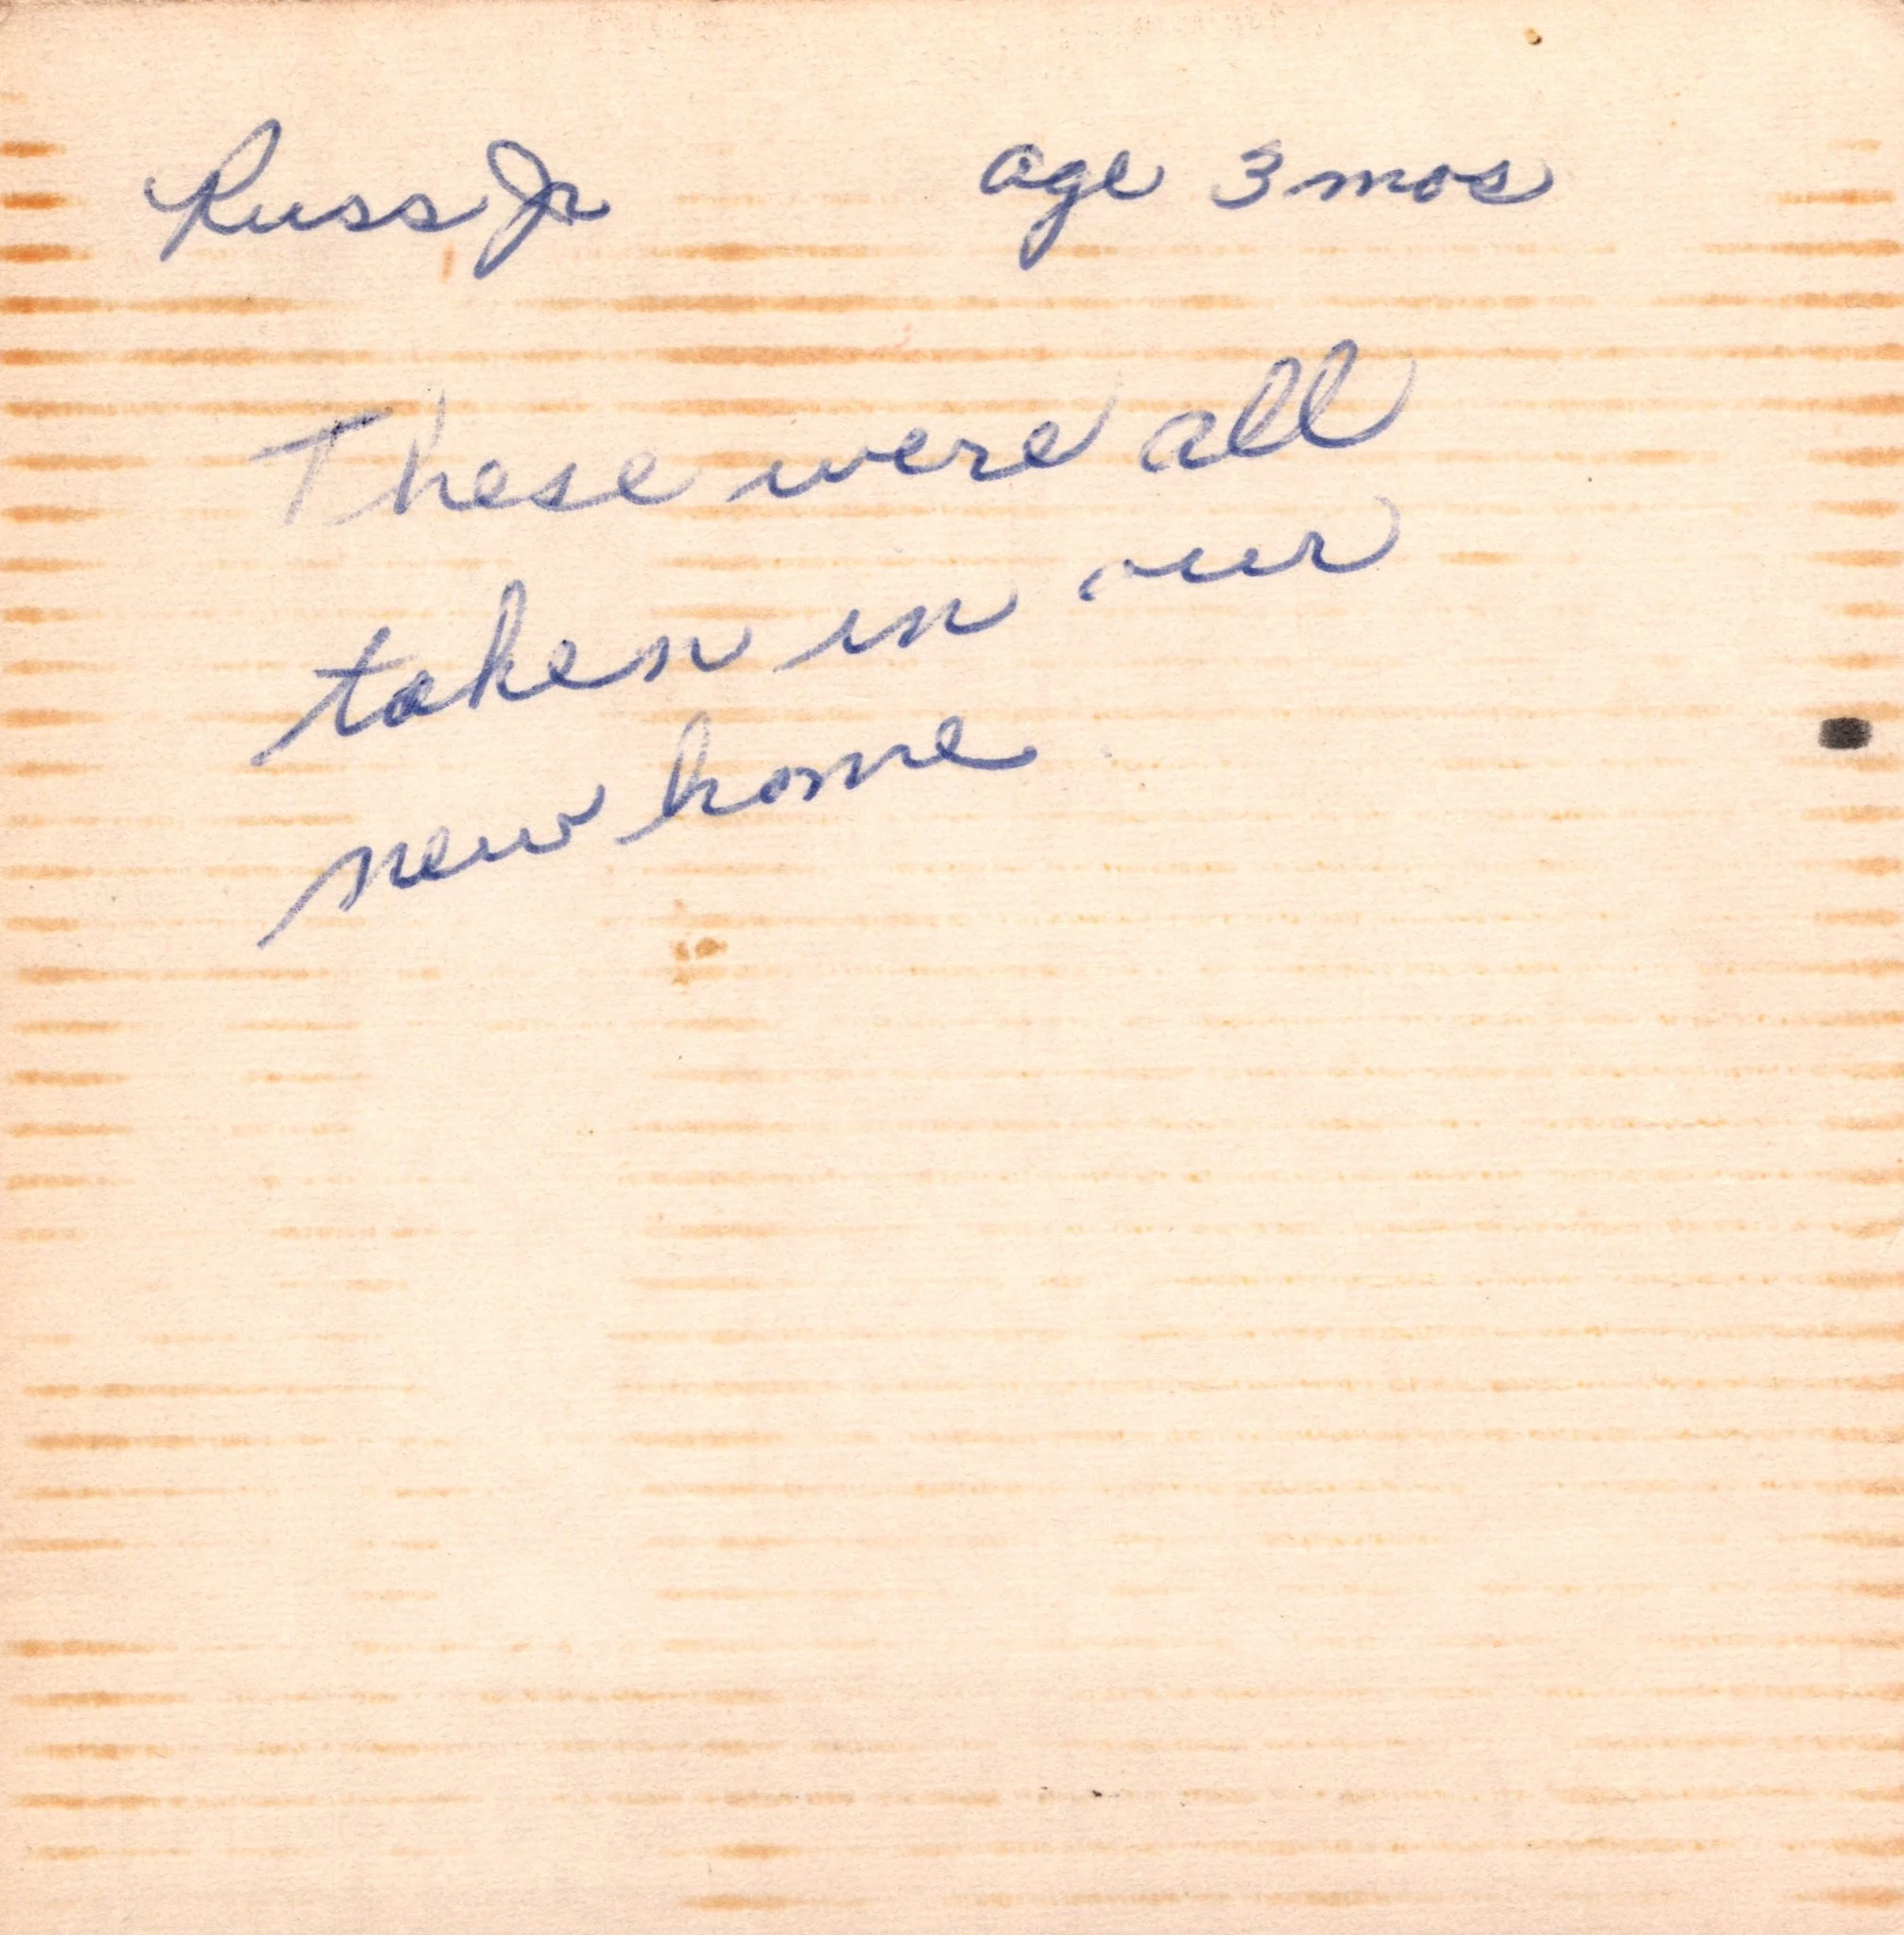 Russ Jr age 3 mos
These were all
taken in our
new home